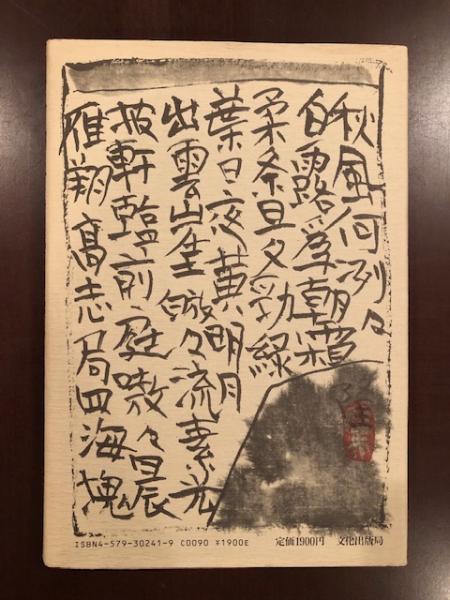 秋風何列々
白露爲朝霜
柔条旦夕勁緑
葉日夜黄明月
出雲崖皦々流素光
披軒臨前庭嗷々晨
雁翔高志局四海塊
ISBN4-579-30241-9 C0090 ¥1900E 定価1900円 文化出版局